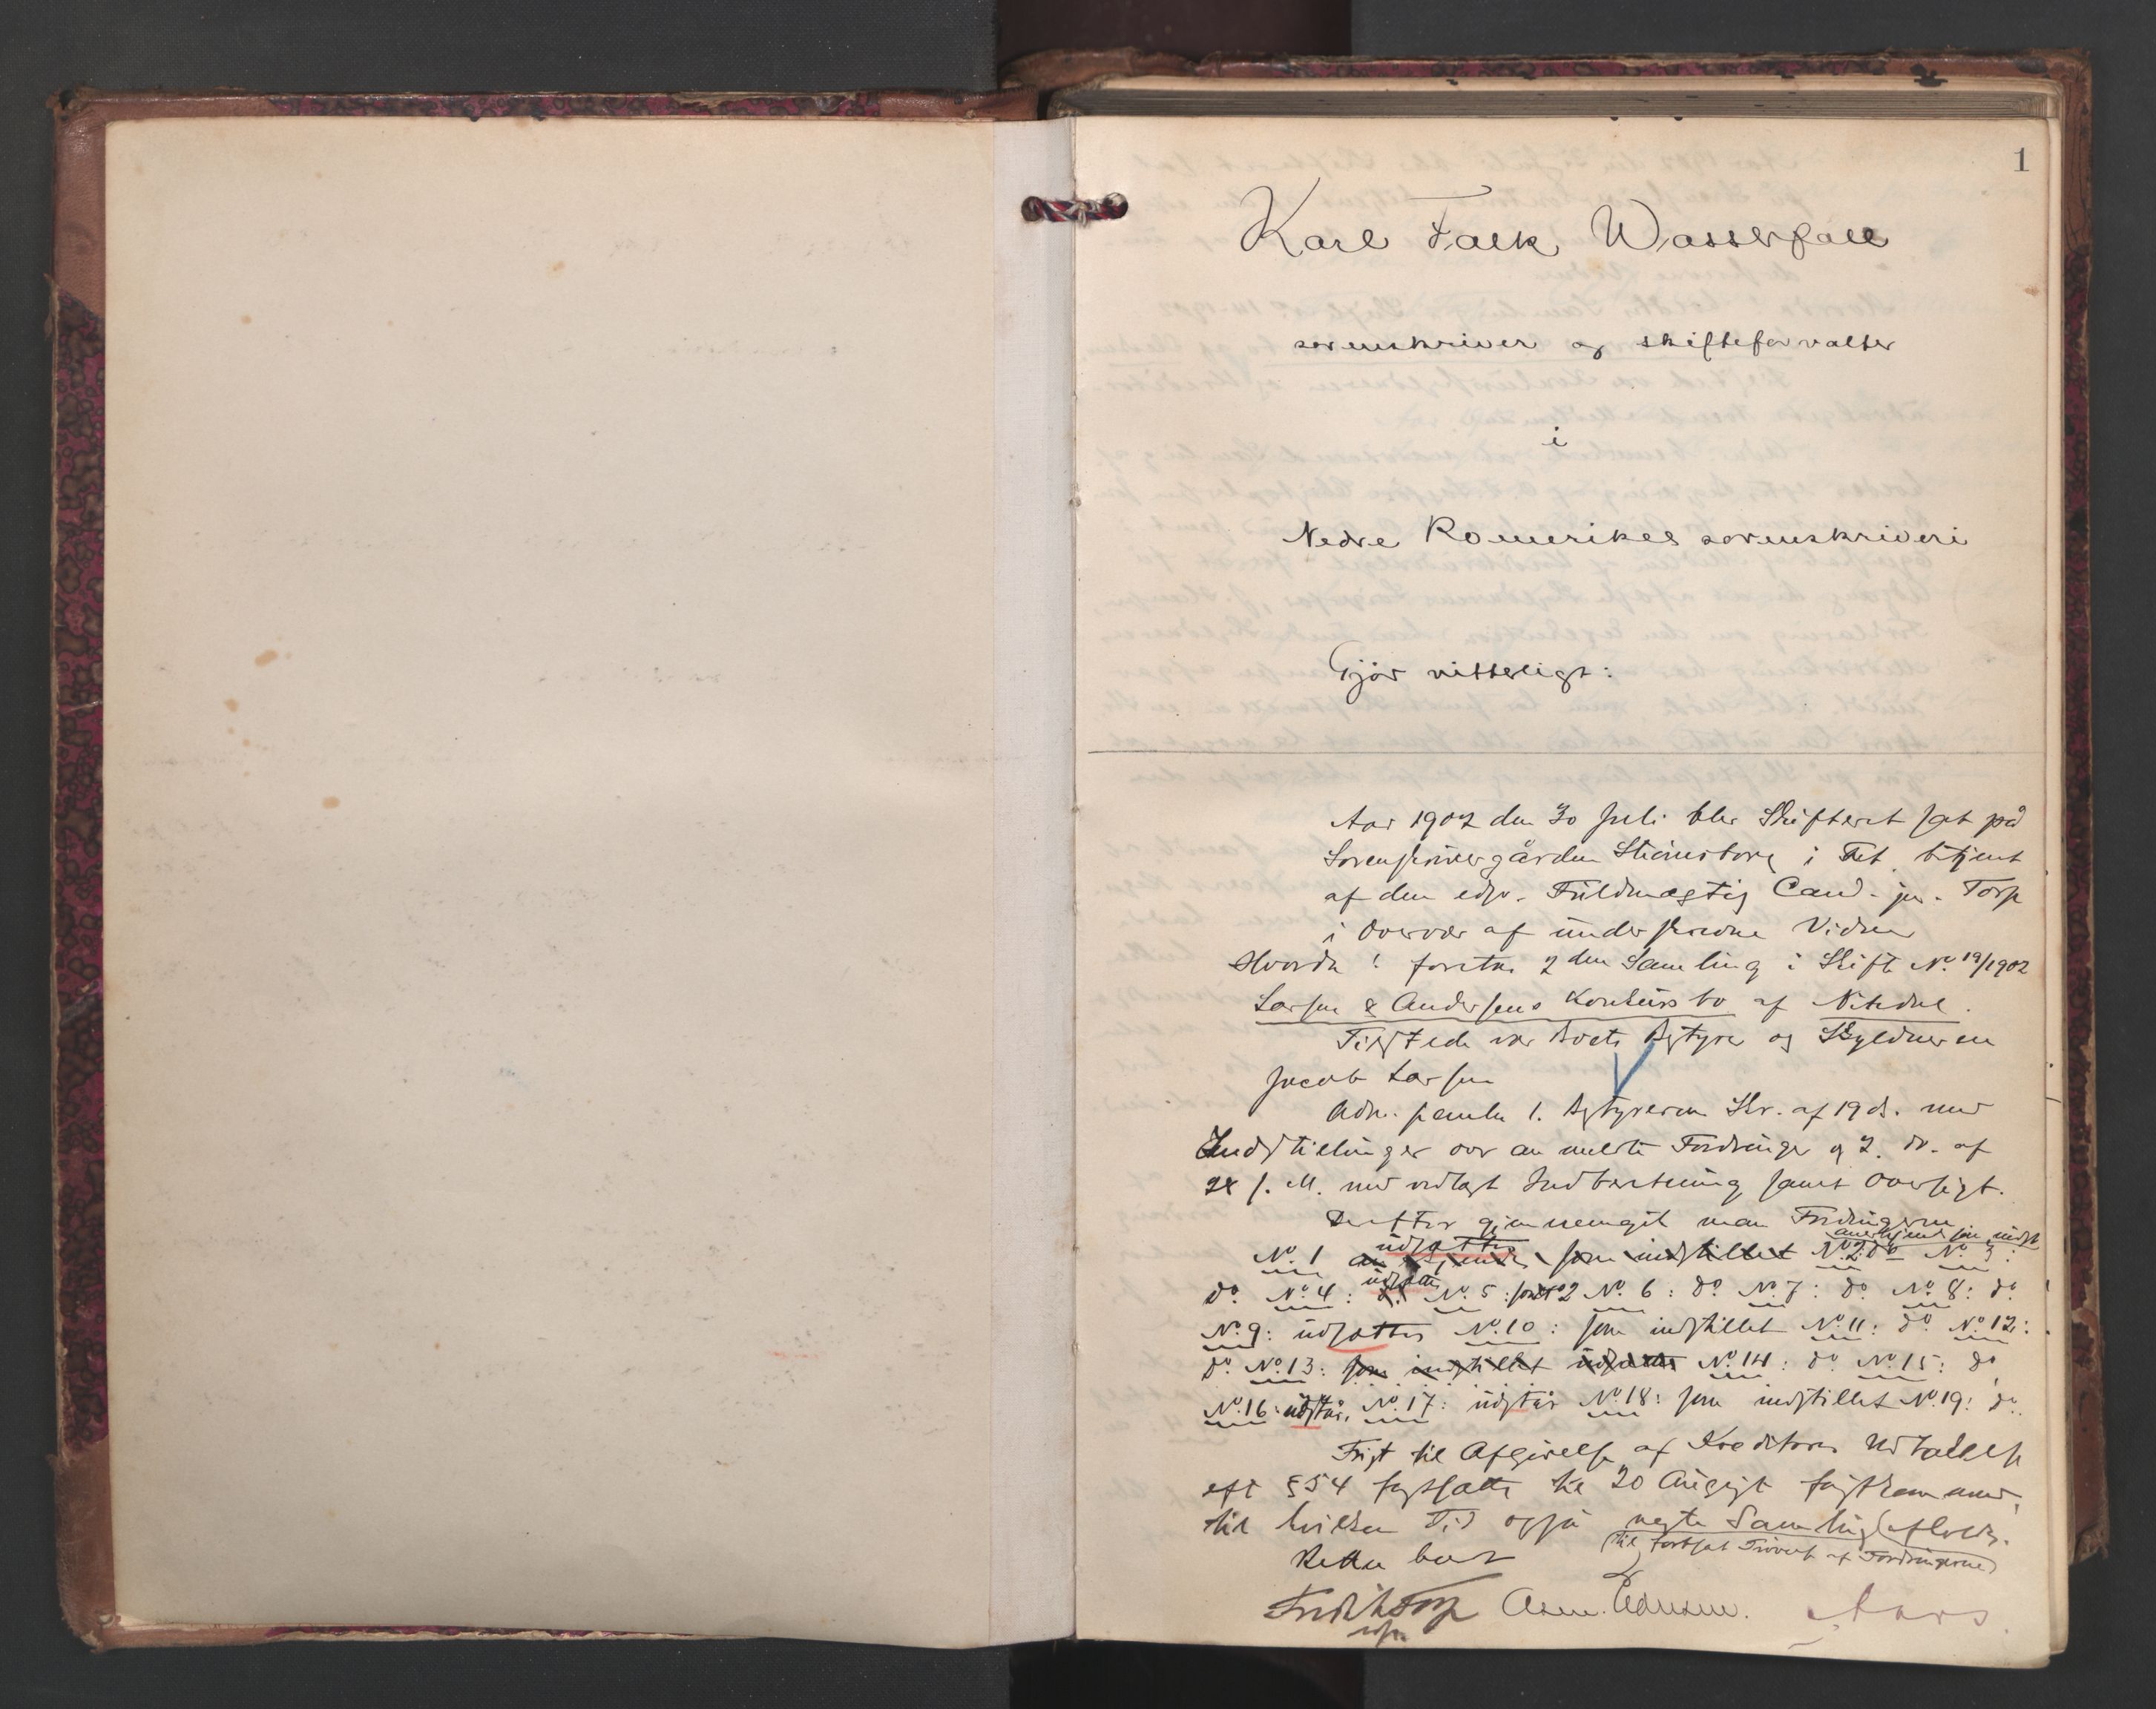 1
Karl Falk Wasserfall
sorenskriver og skifteforvalter
i
Nedre Romerikes sorenskriveri
Gjør vitterligt:
Aar 1902 den 30 Juli blev Skifteret sat på
Sorenskrivergården i Fet, betjent
af den edsv. Fuldmægtig Cand. jur. Torp
i Overvær af underskrevne Vidner
Hvorda: foretas 2den Samling i Skift No. 19/1902
Larsen & Andersens Konkursbo af Nitedal.
Tilstede var Boets Bestyrer og Skyldneren
Jacob Larsen
Adm. fremla 1. Bestyrerens Skr. af 19 ds. med
Indstillinger over anmeldte Fordringer og 2. do. af
28 s. M. med vedlagt Indberetning samt Oversigt.
Derefter gjennemgik man Fordringerne
anerkjendt som indst
udsættes
No. 1 anerkjendes som indstillet No. 2: do No. 3:
udsættes
do. No. 4: No. 5: som No 2 No. 6: do No. 7: do No. 8: do
No. 9: udsættes No. 10: som indstillet No. 11: do No. 12:
do No. 13: som indstillet udsættes No. 14: do No. 15: do
No. 16: udstår, No. 17: udstår No. 18: som indstillet No. 19: do.
Frist til Afgivelse af Kreditorers Udtalelse
eft § 54 fastsattes til 20 August førstkommende,
til hvilken Tid også neste Samling afholdes.
(til fortsat Prøvelse af Fordringerne)
Retten hævet
Fredrik Torp
edsv.
Asm. Edmsen. Aars